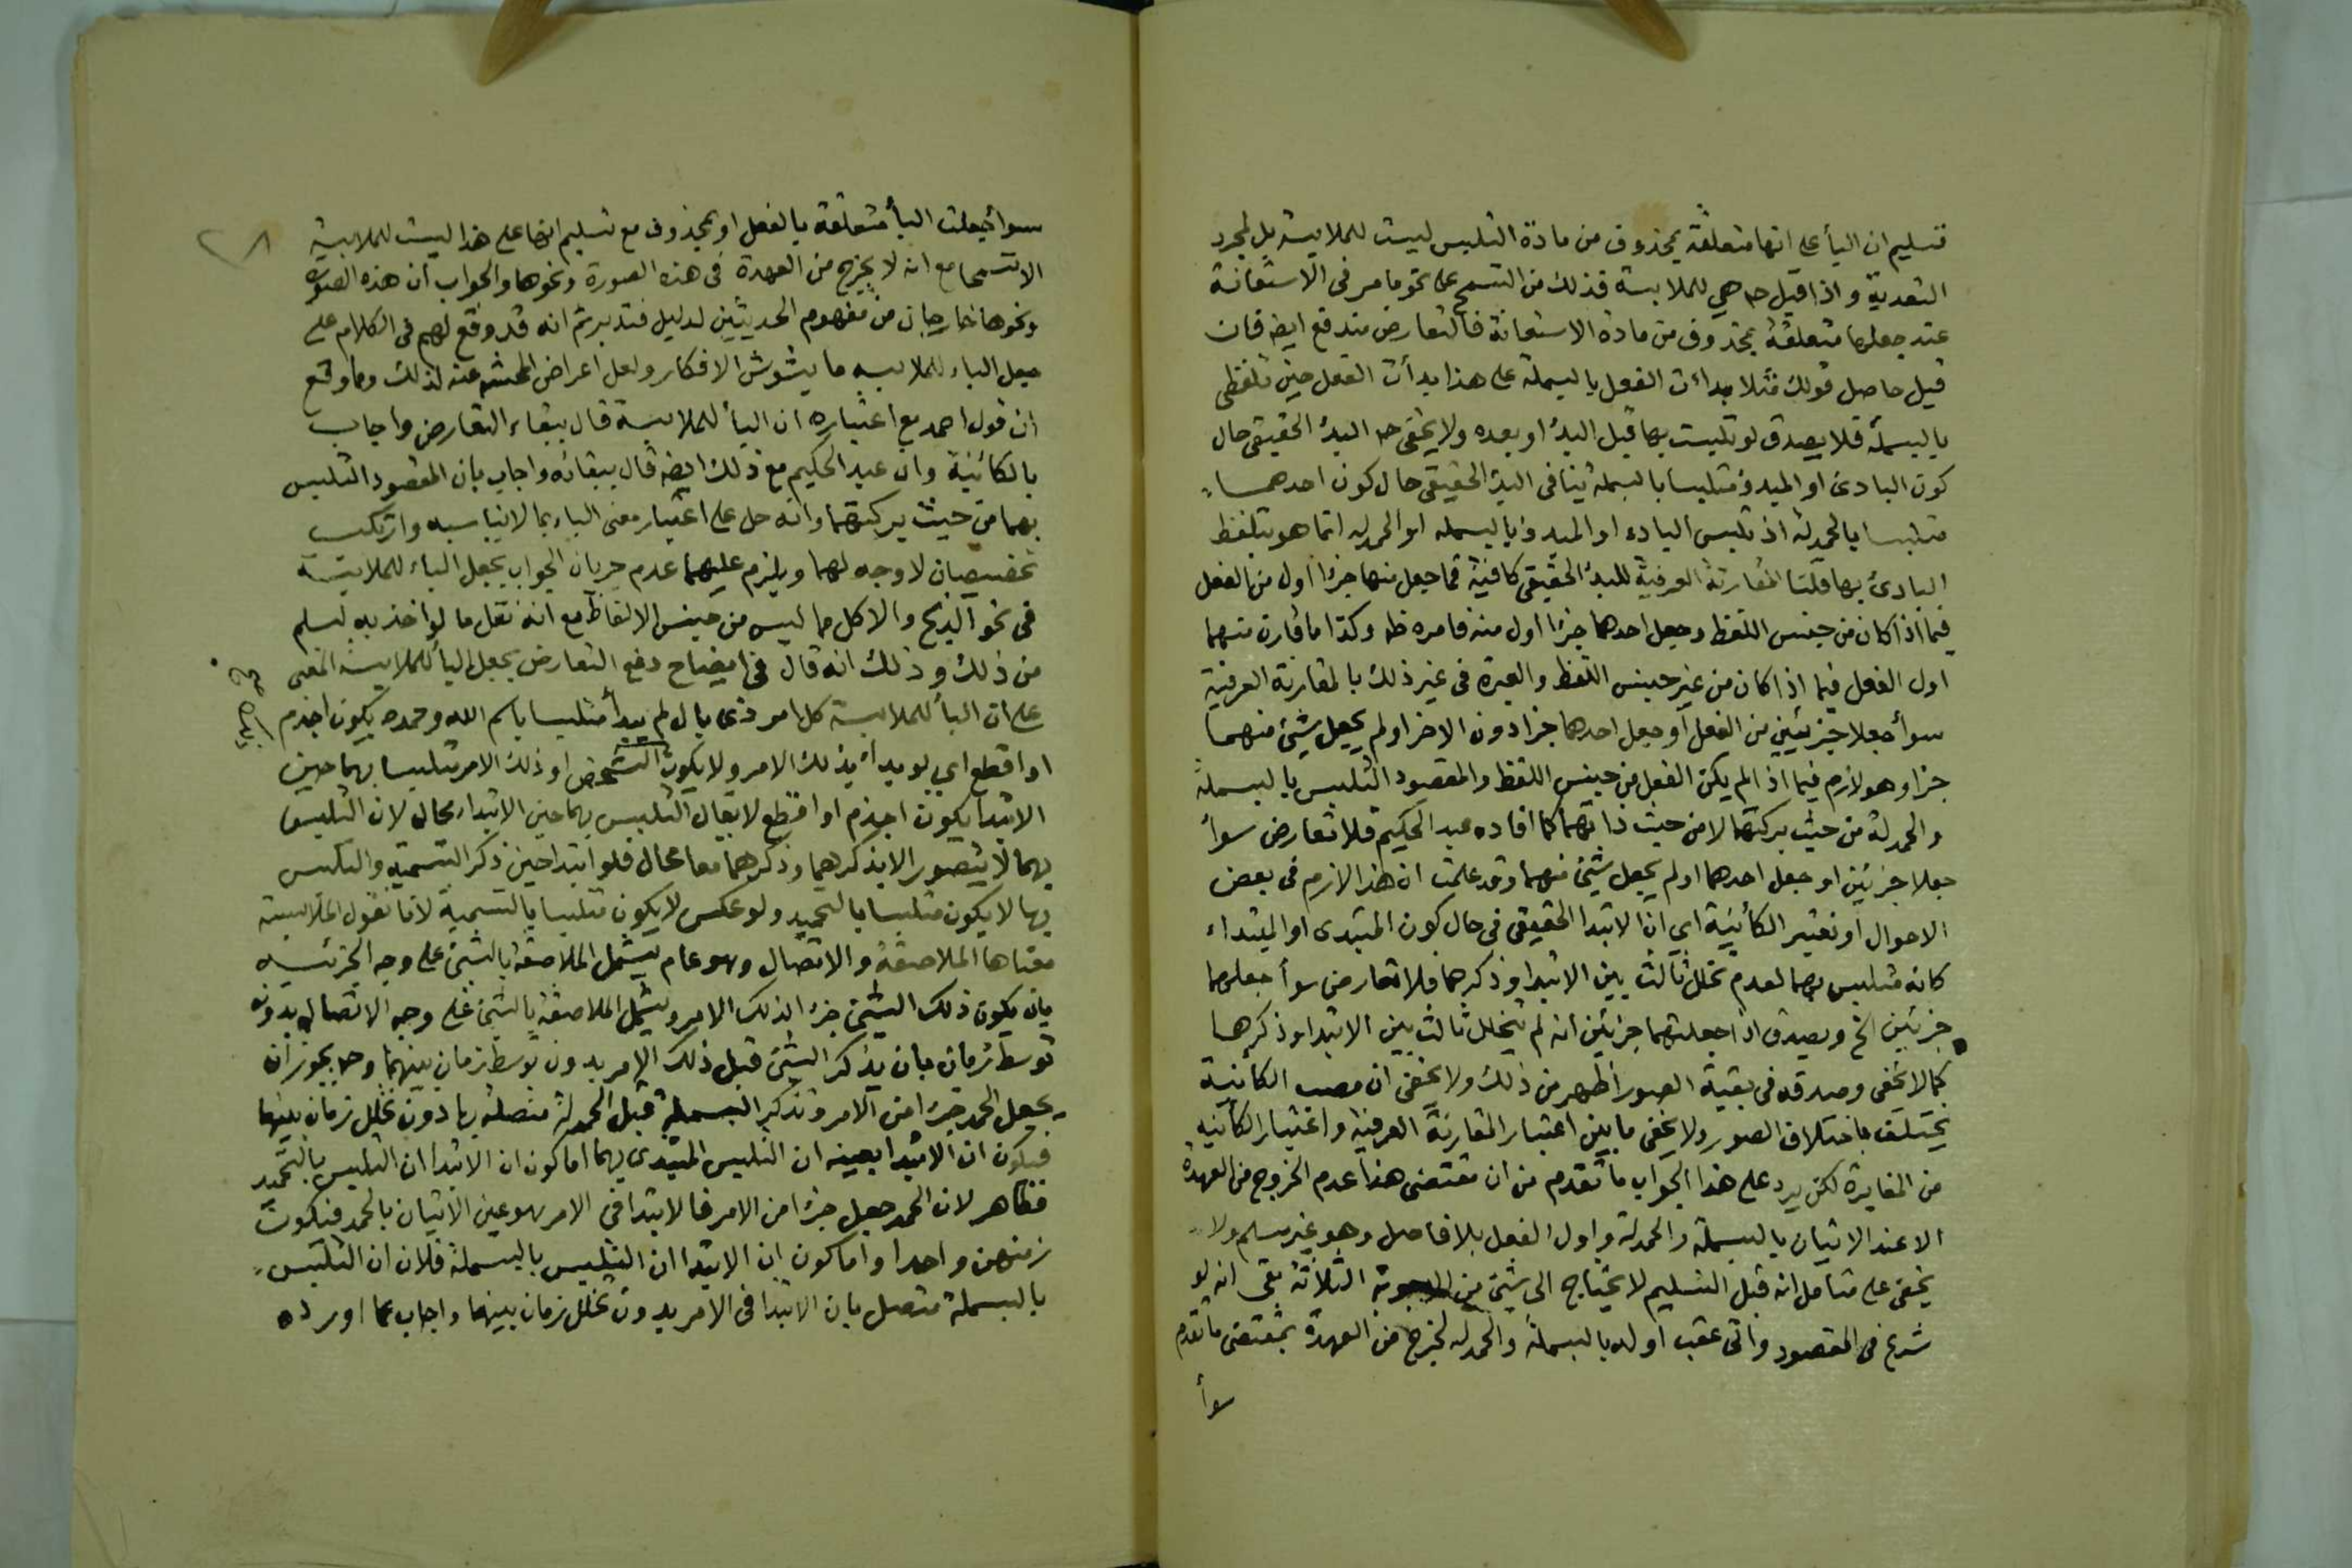 فتسليم ان البأ على انها متعلقة بمحذوف من مادة التلبس ليست للملابسة بل لمجرد
التعدية واذا قيل ح هي للملابسة فذلك من التسمح على نحو ما مر فى الاستعانة
عند جعلها متعلقة بمحذوف من مادة الاستعانة فالتعارض مندفع ايضا فان
قيل حاصل قولك مثلا بداءت الفعل بالبسملة على هذا بدأت الفعل حين تلفظى
بالبسملة فلا يصدق لو تلبست بها قبل البدء او بعده ولا يخفى ح البدء الحقيقى حال
كون البادئ او المبدؤ متلبسا بالبسملة ينافى البدء الحقيقى حال كون احدهما
متلبسا بالحمدلة اذ تلبس البادء او المبدؤ بالبسمله او الحمدله انما هو بتلفظ
البادئ بها قلنا المقارنة العرفية للبدء الحقيقى كافية فما جعل منها جزءا اول من الفعل
فيما اذا كان من جنس اللفظ وجعل احدهما جزءا اول منه فامره ظ وكذا ما قارن منهما
اول الفعل فيما اذا كان من غير جنس اللفظ والعبرة فى غير ذلك بالمقارنة العرفية
سوأ جعلا جزئين من الفعل او جعل احدهما جزا دون الاخر او لم يجعل شيئ منهما
جزا وهو لازم فيما اذا لم يكن الفعل من جنس اللفظ والمقصود التلبس بالبسملة
والحمدلة من حيث بركتهما لا من حيث ذاتهما كما افاده عبد الحكيم فلا تعارض سوأ
جعلا جزئين او جعل احدهما او لم يجعل شيئ منهما وقد علمت ان هذا لازم فى بعض
الاحوال او نعتبر الكأئنية اي ان الابتدا الحقيقى فى حال كون المبتدى او المبتداء
كانه متلبس بهما لعدم تخلل ثالث بين الابتدا وذكرهما فلا تعارض سوأ جعلهما
جزئين الخ ويصدق اذا جعلتهما جزئين انه لم يتخلل ثالث بين الابتدا وذكرهما
كما لا يخفى وصدقه فى بقية الصور اظهر من ذلك ولا يخفى ان مصب الكأنية
يختلف باختلاف الصور ولا يخفى ما بين اعتبار المقارنة العرفية واعتبار الكأنيه
من المغايرة لكن يرد على هذا الجواب ما تقدم من ان مقتضى هذا عدم الخروج من العهدة
الا عند الاتيان بالبسملة والحمدلة واول الفعل بلا فاصل وهو غير مسلم ولا
يخفى على متامل انه قبل التسليم لا يحتاج الى شيئ من الاجوبة الثلاثة بقى انه لو
شرع فى المقصود واتى عقب اوله بالبسملة والحمدله لخرج من العهدة بمقتضى ما تقدم
سوأ
سوأ جعلت البأ متعلقة بالفعل او بمحذوف مع تسليم انها على هذا ليست للملابسة
الا تسمحا مع انه لا يخرج من العهدة فى هذه الصورة ونحوها والجواب ان هذه الصوره
ونحوها خارجان من مفهوم الحديثين لدليل فتدبر ثم انه قد وقع لهم فى الكلام على
جعل الباء للملابسه ما يشوش الافكار ولعل اعراض المحشى عنه لذلك ومما وقع
ان قول احمد مع اعتباره ان البأ للملابسة قال ببقاء التعارض واجاب
بالكائنية وان عبد الحكيم مع ذلك ايضا قال ببقائه واجاب بان المقصود التلبس
بهما من حيث بركتهما وانه حل على اعتبار معنى الباء بما لا يناسبه وارتكب
تخصيصان لا وجه لهما ويلزم عليهما عدم جريان الجواب بجعل الباء للملابسة
فى نحو الذبح والاكل مما ليس من جنس الالفاظ مع انه نقل ما لو اخذ به لسلم
من ذلك وذلك انه قال فى ايضاح دفع التعارض بجعل البأ للملابسة المعنى
على ان البأ للملابسة كل امر ذى بال لم يبدأ متلبسا باسم الله وحمده يكون اجذم
او اقطع اي لو بدأ بذلك الامر ولا يكون الشخص او ذلك الامر متلبسا بهما حين
الابتدا يكون اجذم او اقطع لا يقال التلبس بهما حين الابتداء محال لان التلبس
بهما لا يتصور الا بذكرهما وذكرهما معا محال فلو ابتدا حين ذكر التسمية والتلبس
بها لا يكون متلبسا بالتحميد ولو عكس لا يكون متلبسا بالتسمية لانا نقول الملابسة
معناها الملاصقة والاتصال وهو عام يشمل الملاصقة بالشئ على وجه الجزئيه
بان يكون ذلك الشئ جزءا لذلك الامر ويشمل الملاصقة بالشئ على وجه الاتصال بدونه
توسط زمان بان يذكر الشئ قبل ذلك الامر بدون توسط زمان بينهما وح يجوز ان
يجعل الحمد جزءا من الامر وتذكر البسملة قبل الحمدلة متصلة بها دون تخلل زمان بينهما
فيكون ان الابتدا بعينه ان التلبس المبتدى بهما اما كون ان الابتدا ان التلبس بالتحميد
فظاهر لان الحمد جعل جزءا من الامر فالابتدا فى الامر هو عين الاتيان بالحمد فيكون
زمنهن واحدا واما كون ان الابتدا ان التلبس بالبسملة فلان ان التلبس
بالبسملة متصل بان الابتدا فى الامر بدون تخلل زمان بينهما واجاب عما اورده